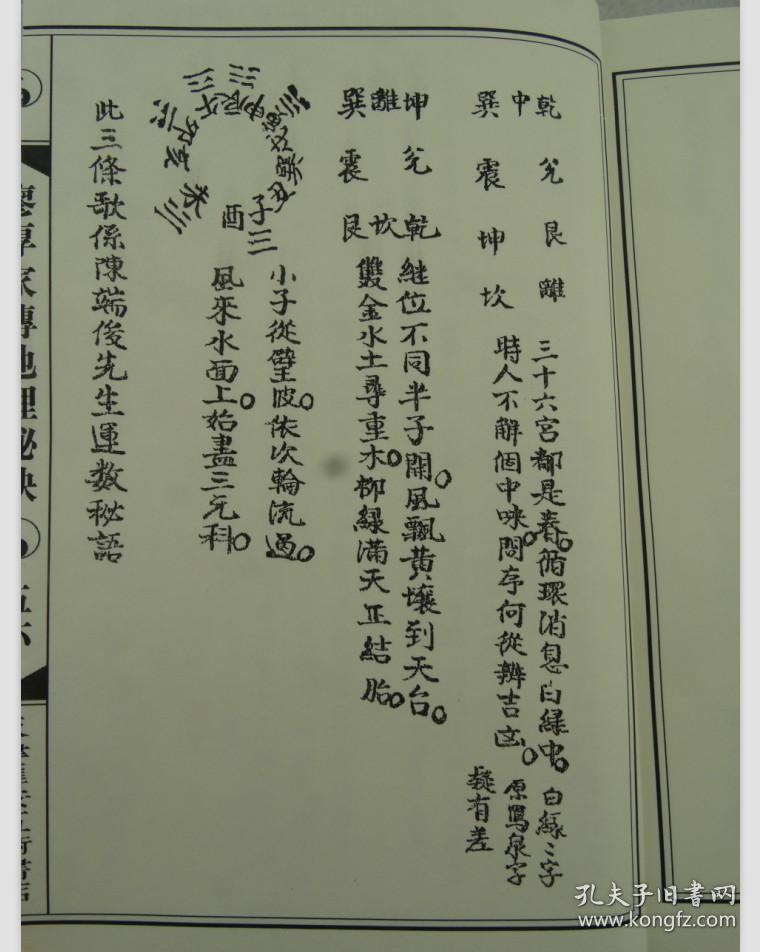 乾 兊 艮 離
中
巽 震 坤 坎
三十六宮都是春循環消息白緑中
時人不解個中味間存何從辨吉凶
白緑二字
原寫泉字
疑有差
坤 兊 乾
離 坎
巽 震 艮
継位不同半子開風飄黃壤到天台
雙金水土尋重木柳緑滿天正結胎
子
酉
小子從壁陂依次輪流過
風來水面上始盡三元科
此三條歌係陳端俊先生運數秘語
家傳地理秘訣
五六
孔夫子旧书网
www.kongfz.com